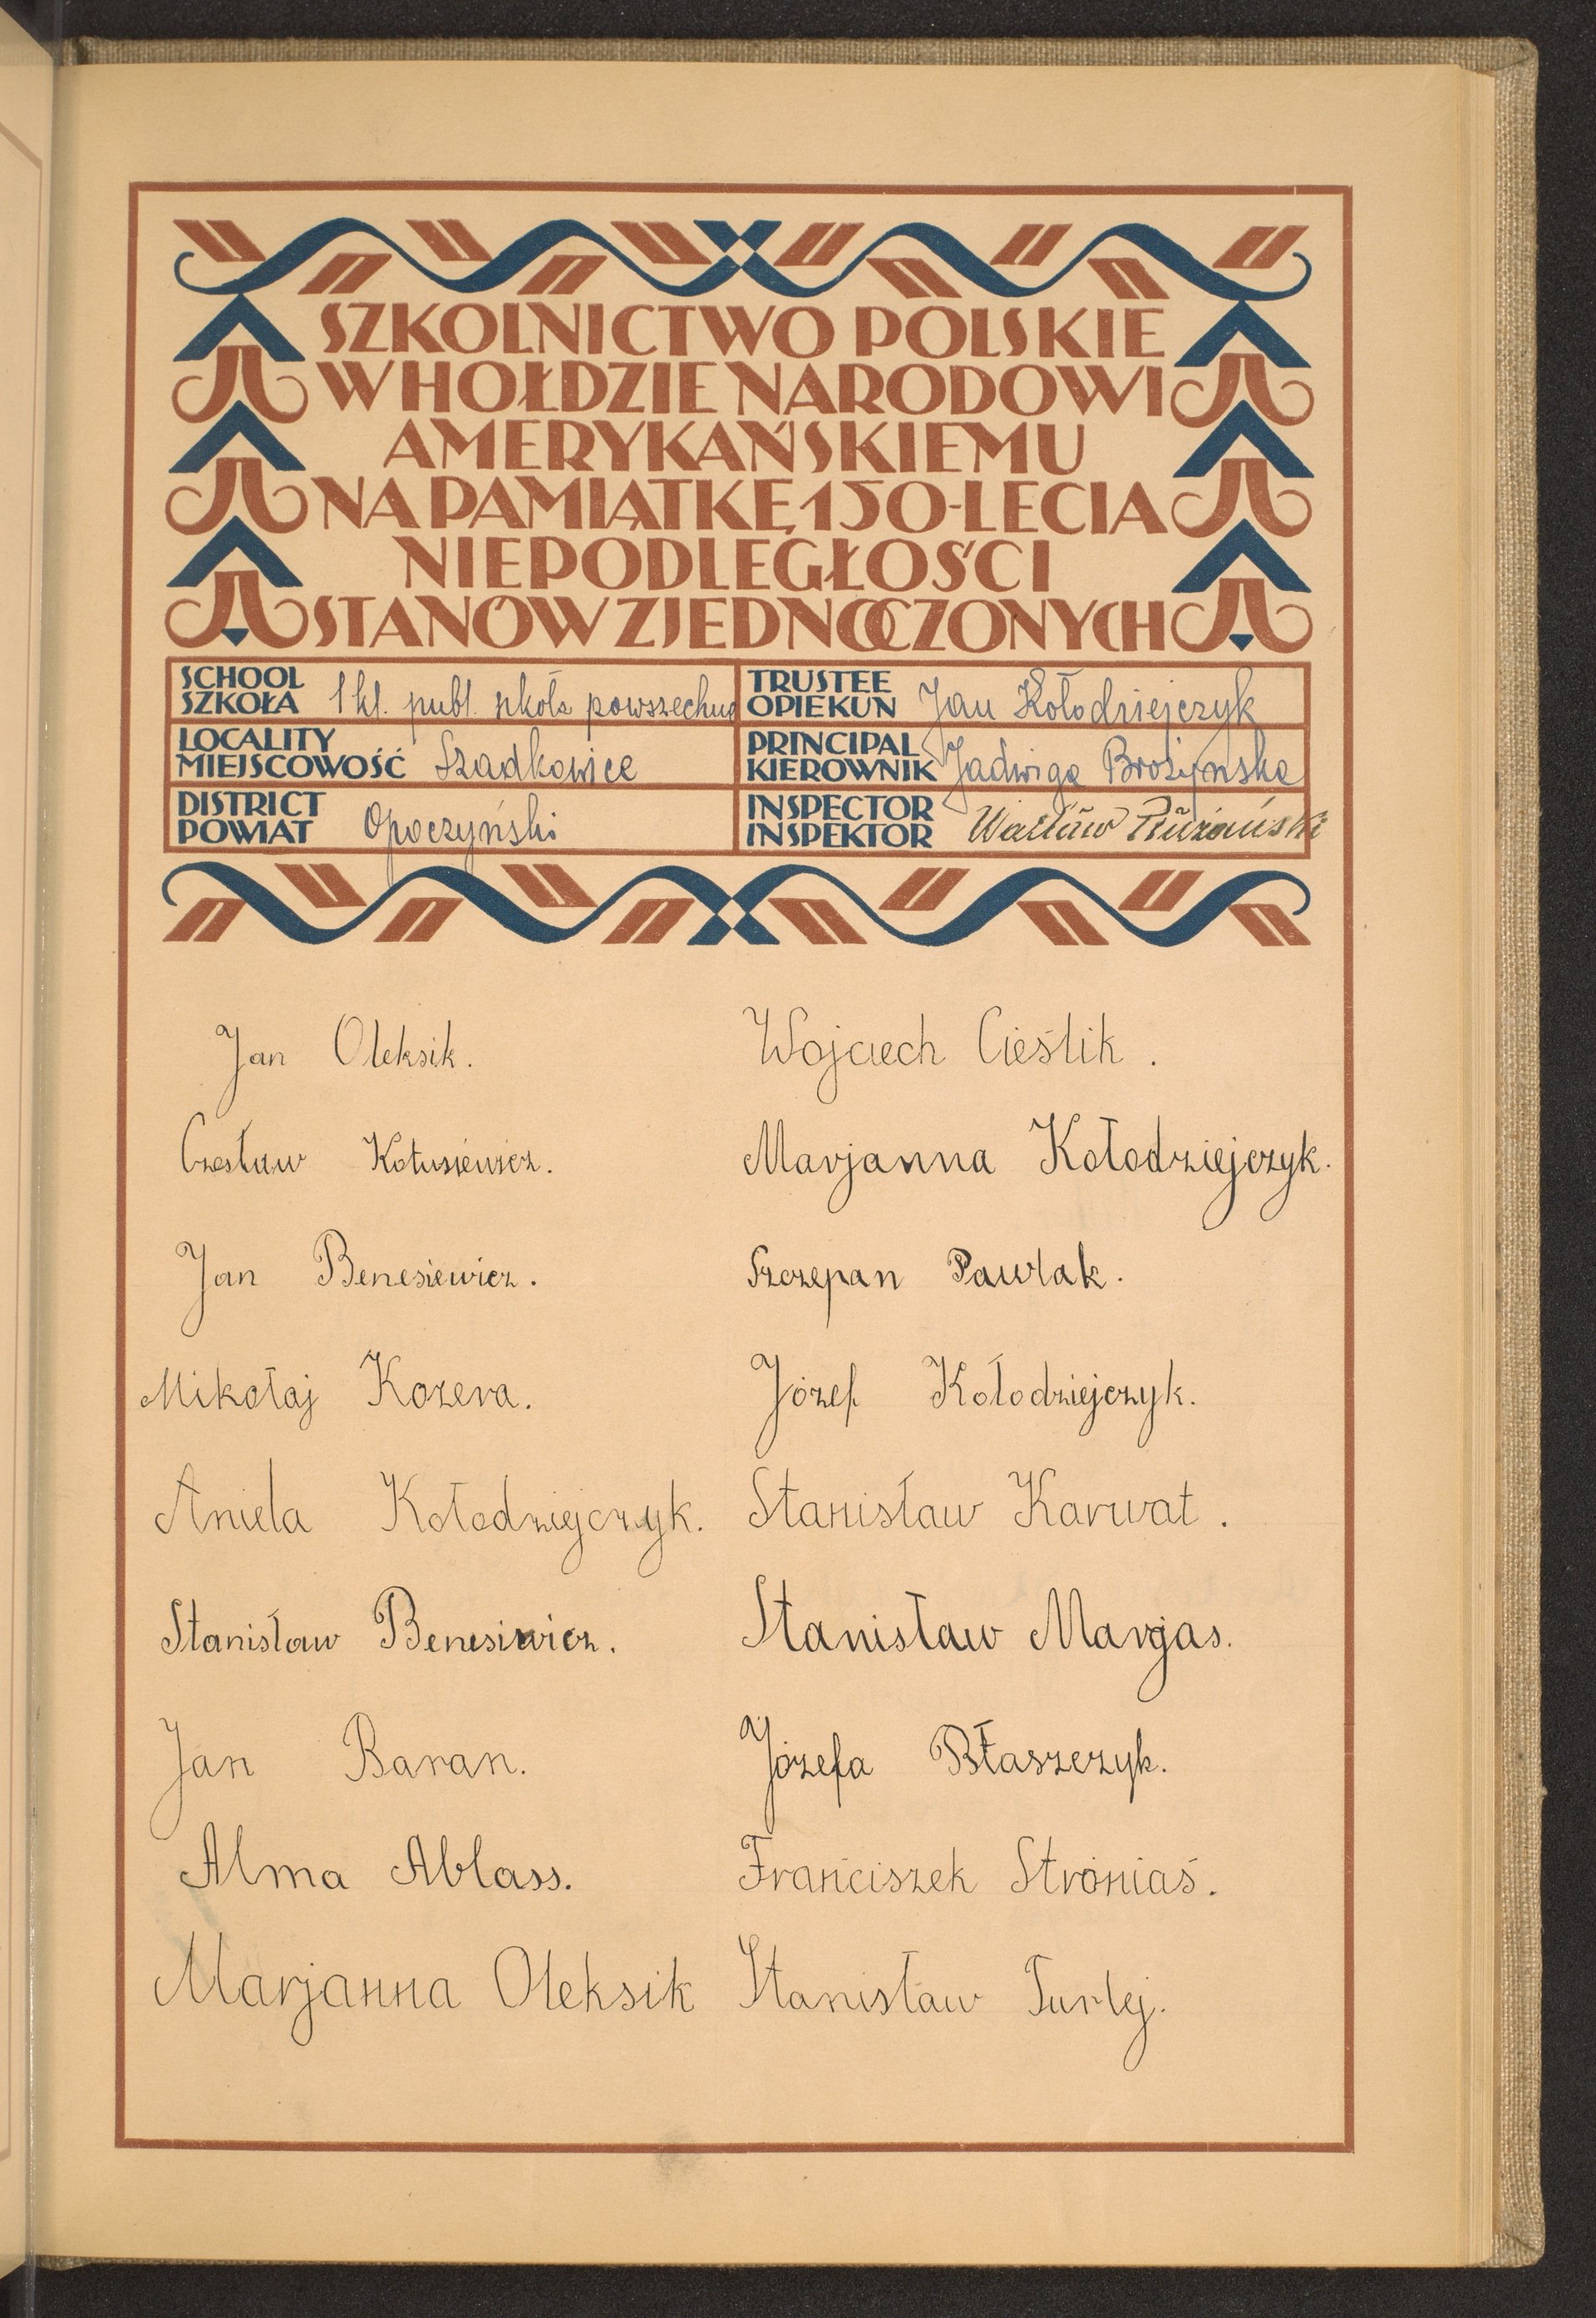 SZKOLNICTWO POLSKIE
W HOŁDZIE NARODOWI
AMERYKAŃSKIEMU
NA PAMIĄTKĘ 150-LECIA
NIEPODLEGŁOŚCI
STANÓW ZJEDNOCZONYCH
SCHOOL
SZKOŁA 1 kl. publ. szkoła powszechna
TRUSTEE
OPIEKUN Jan Kołodziejczyk
LOCALITY
MIEJSCOWOŚĆ Szadkowice
PRINCIPAL
KIEROWNIK Jadwiga Brożyńska
DISTRICT
POWIAT Opoczyński
INSPECTOR
INSPEKTOR Wacław
Jan Oleksik.
Czesław Kotusiewicz.
Jan Benesiewicz.
Mikołaj Kozera.
Aniela Kołodziejczyk.
Stanisław Benesiewicz.
Jan Baran.
Alma Ablass.
Marjanna Oleksik
Wojciech Cieślik.
Marjanna Kołodziejczyk.
Szczepan Pawlak.
Józef Kołodziejczyk.
Stanisław Karwat.
Stanisław Margas.
Józefa Błaszczyk.
Franciszek Stróniaś.
Stanisław Turlej.